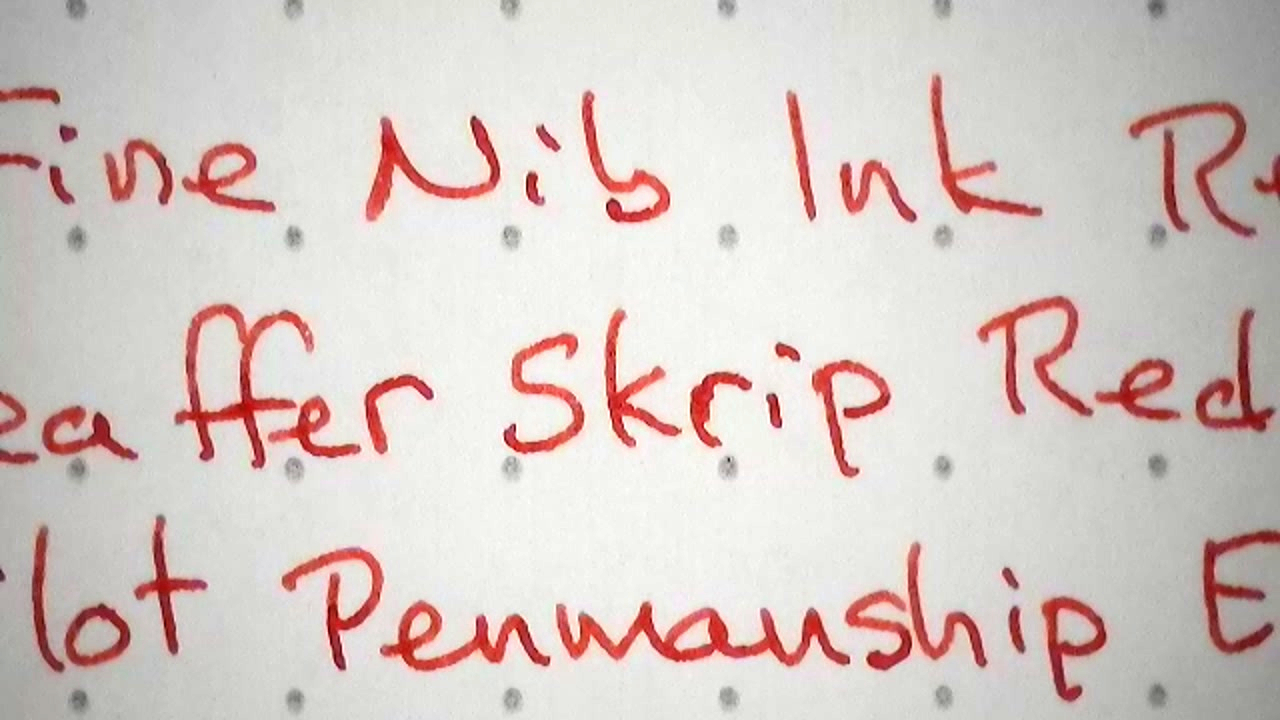 Fine Nib Ink Re
eaffer Skrip Red
lot Penmanship E